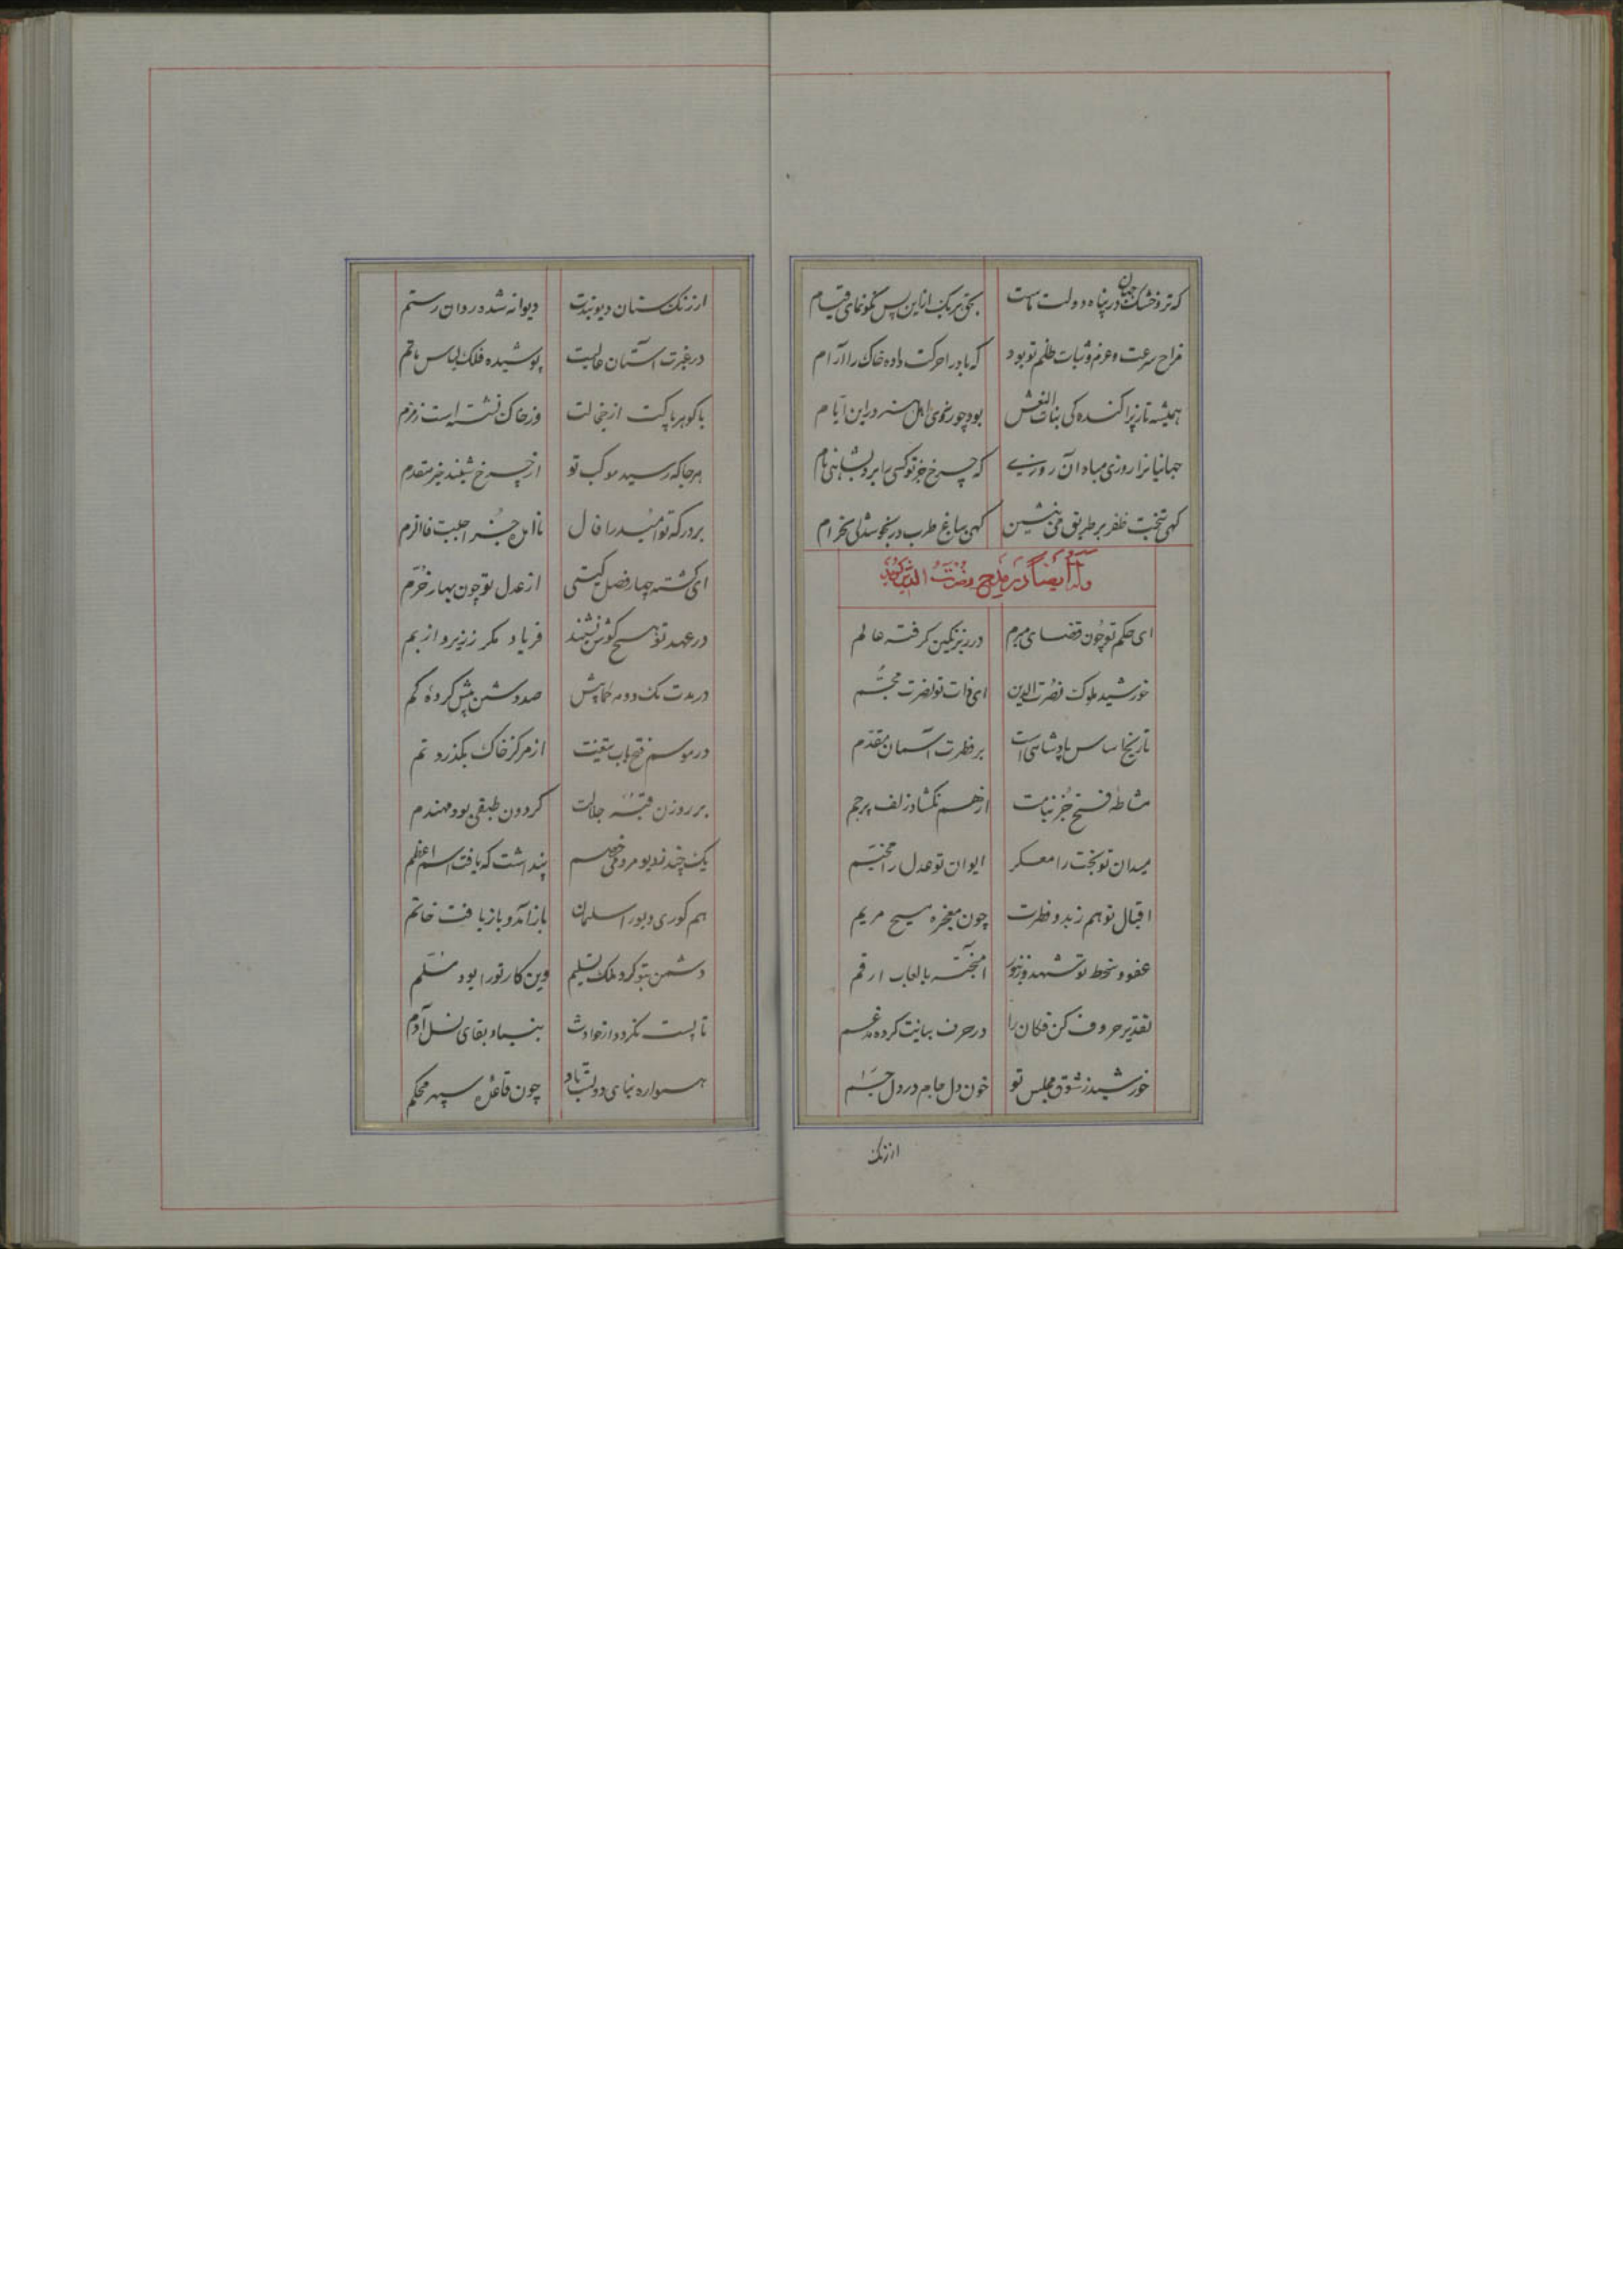 که تر و خشک جهان در پناه دولت تست بحق هر یک ازین پس نکو نمای قیام
مزاح سرعت و عزم و ثبات حلم تو بود که باد را حرکت داده خاک را آرام
همیشه تا ز پراکنده کی بنات النعش بود چو رغوی اهل هنر در این ایام
جهانیانرا روزی مباد آن روزی که چرخ جز تو کسی را برد بشاهی نام
کهی بتخت ظفر بر طریق می بنشین کهی بباغ طرب در بخوشدلی بخرام
وله ایضا در مدح نصرت الدین گوید
ای حکم تو چون قضای مبرم در زیر نکین کرفته عالم
خورشید ملوک نصرت الدین ای ذات تو نصرت مجسم
تاریخ اساس پادشاهی است بر فطرت آسمان مقدم
مشاطه فتح جز بنامت از هم نکشاد زلف پرچم
میدان تو بخت را معسکر ایوان تو عدل را مخیم
اقبال تو هم ز بدو فطرت چون معجزه مسیح مریم
عفو و سخط تو شهد و زنبور آمیخته با لعاب ارقم
تقدیر حروف کن فکان را در حرف بنانت کرده مدغم
خورشید ز شوق مجلس تو خون دل جام در دل جم
ارزنک
ارزنک ستان دیو بندت دیوانه شده روان رستم
در غیرت آستان عالیت پوشیده فلک لباس ماتم
با کوهر پاکت از خجالت وز خاک نشسته است زمزم
هر جا که رسید موکب تو از چرخ شنید خیر مقدم
بر درکه تو امید را فال نا اهل جز اجلبت فالزم
ای کشته چهار فصل کیتی از عدل تو چون بهار خرم
در عهد تو هیچ کوش نشنید فریاد مکر ز زیر و از بم
در مدت یک دو مه حمایتش صد دشمن بیش کرده کم
در موسم فتح باب تیغت از مرکز خاک بکذرد نم
بر روزن قبه جلالت کردون طبقی بود مهندم
یک چند ز دیو مردمی خصم پنداشت که یافت اسم اعظم
هم کوری دیو را سلیمان باز آمد و باز یافت خاتم
دشمن بتو کرد ملک تسلیم وین کار تو را بود مسلم
تا پست نکردد از حوادث بنیاد بقای نسل آدم
همواره بنای دولتت باد چون قاعده سپهر محکم